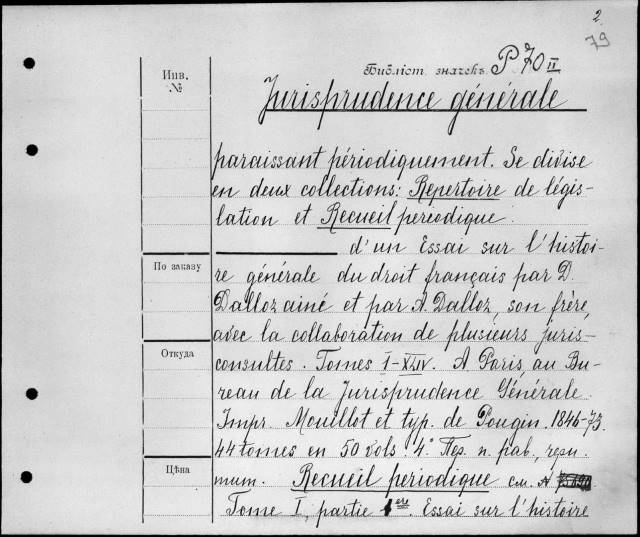 2
79
Инв.
№
Библіот. значекъ P 70 II
Jurisprudence générale
paraissant périodiquement. Se divise
en deux collections: Répertoire de légis-
lation et Recueil periodique.
d'un Essai sur l'histoi-
По заказу
re générale du droit français par D.
Dalloz ainé et par A. Dalloz, son frère,
avec la collaboration de plusieurs juris-
Откуда
consultes. Tomes I-XLIV. A Paris, au Bu-
reau de la Jurisprudence Générale.
Impr. Mouillot et typ. de Pougin. 1846-73.
44 tomes en 50 vols. 4°.
Цѣна
тит. Recueil periodique см. A
Tome I, partie 1ère. Essai sur l'histoire